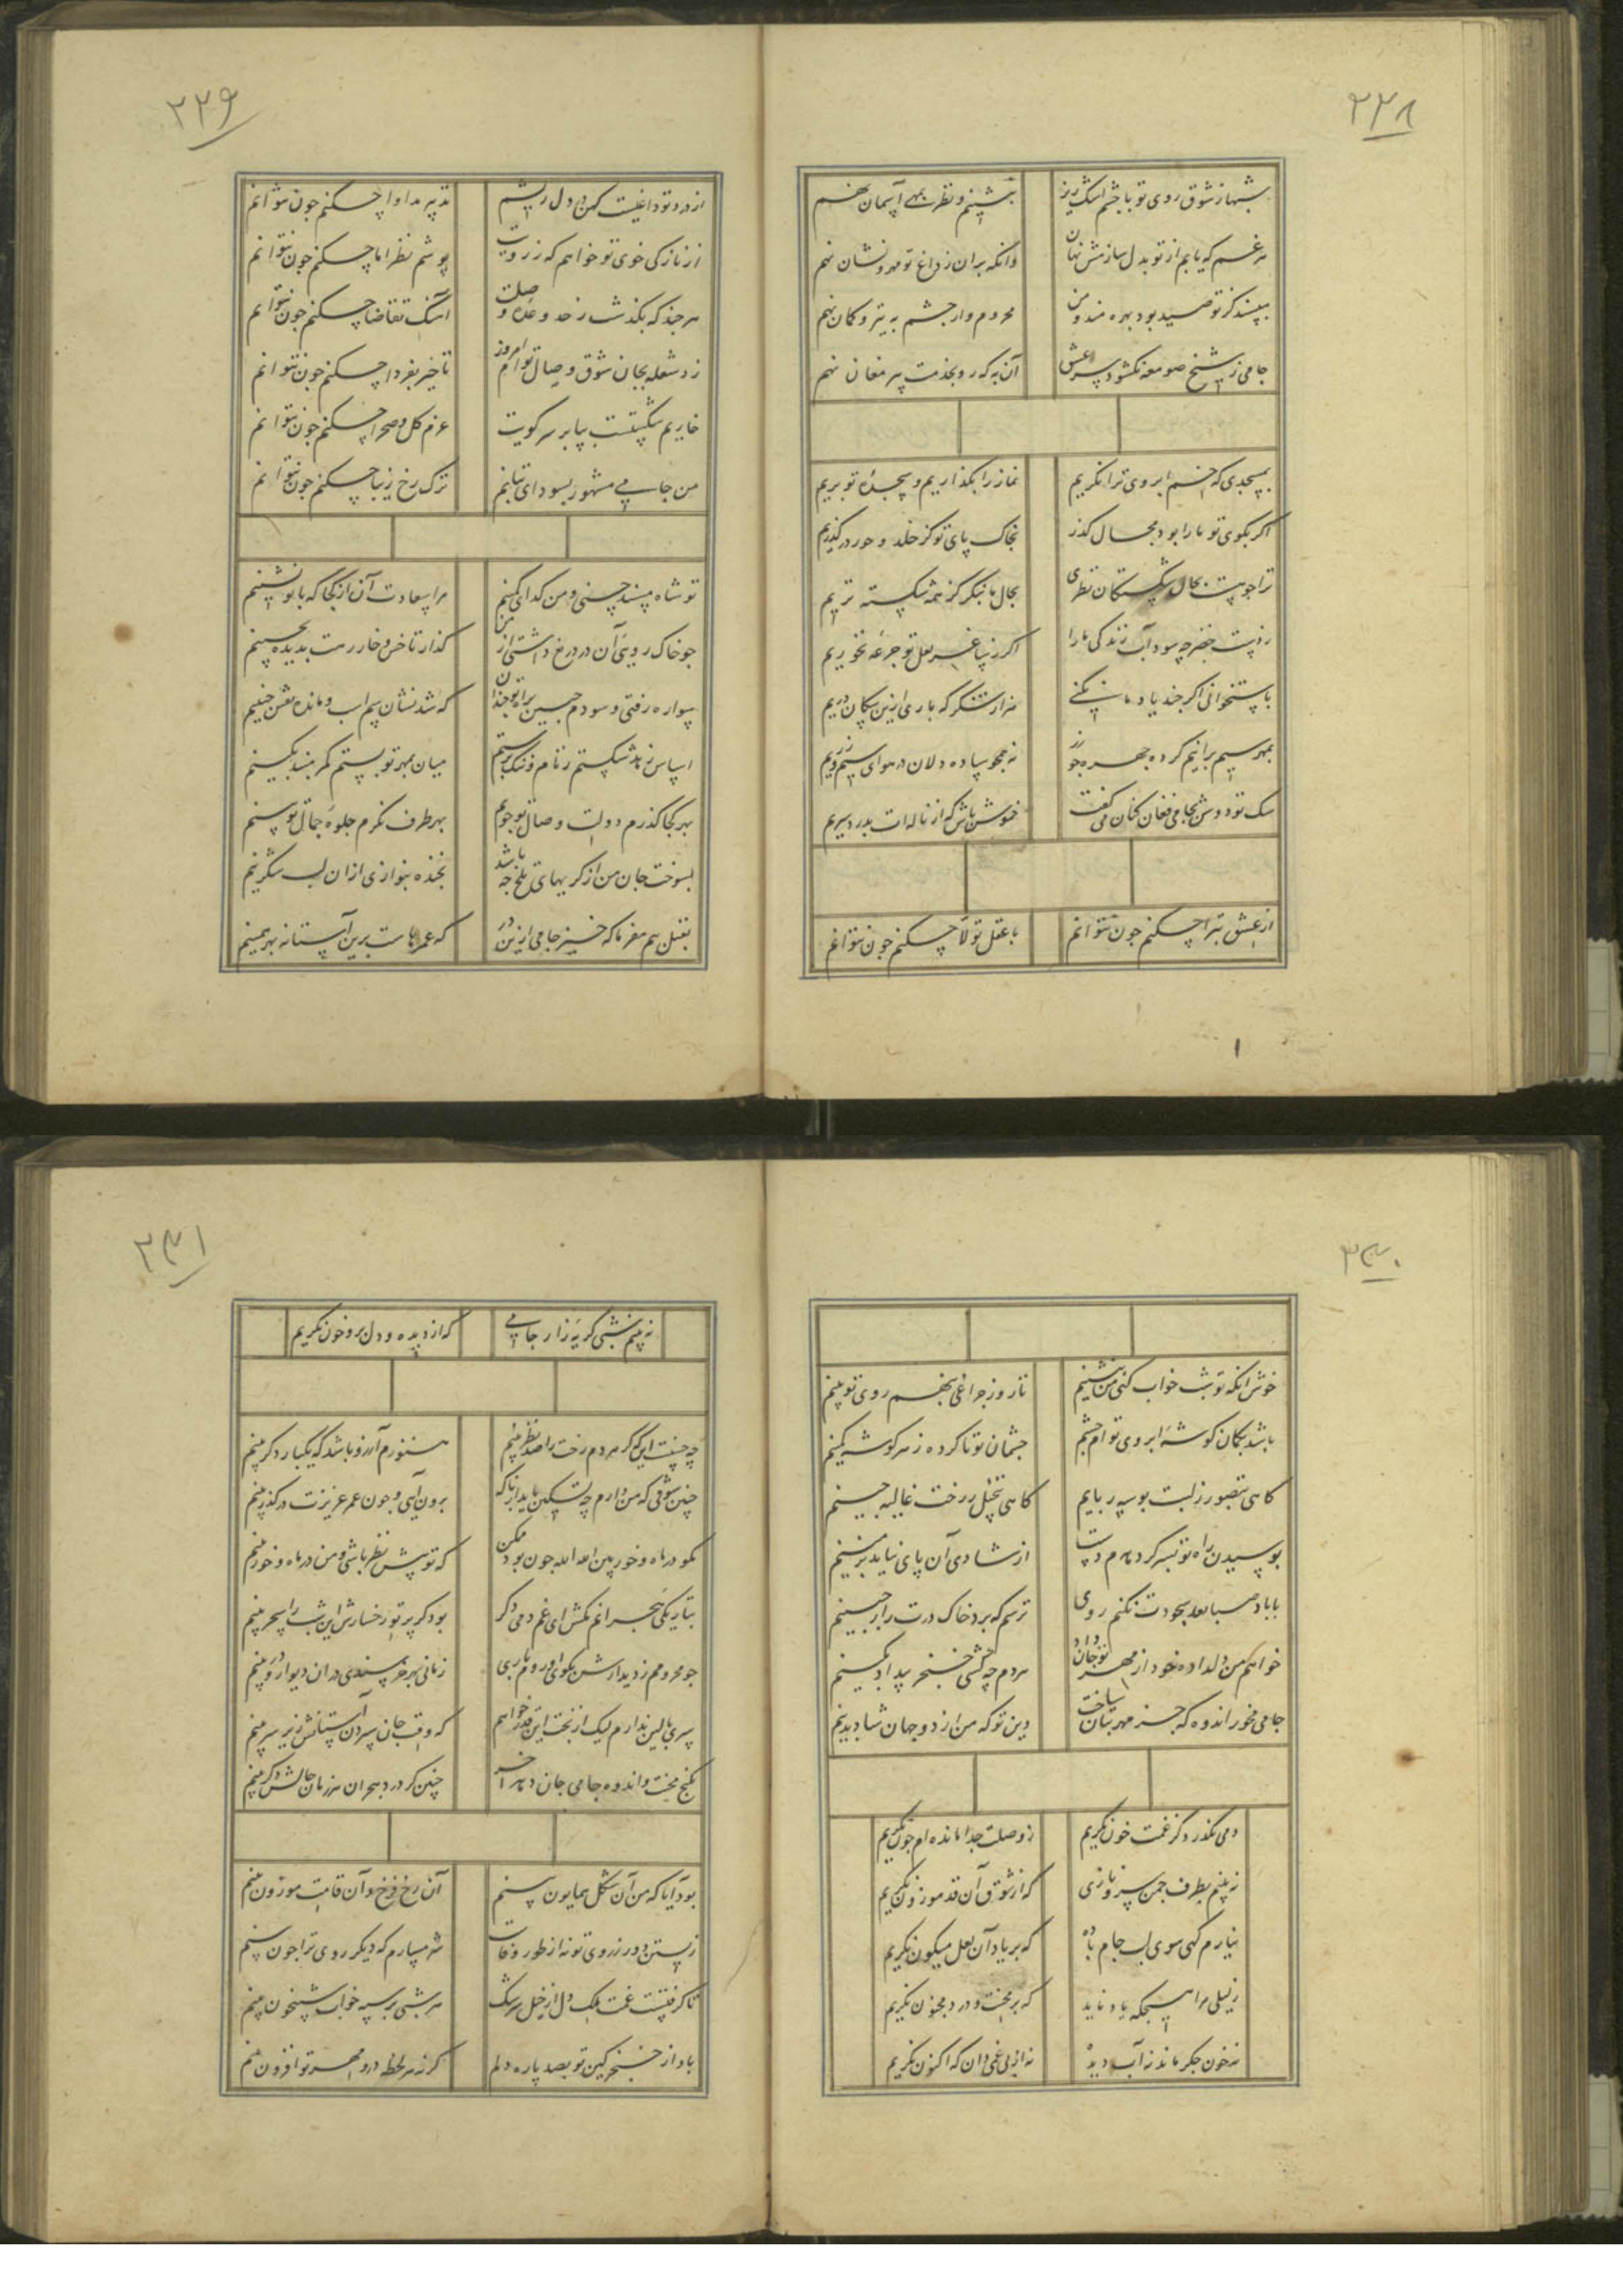 ۲۲۸
شبها ز شوق روی تو با چشم اشک ریز بنشینم و نظر بمهی آسمان نهم
هر غم که یابم از تو بدل سازمش نهان وانکه بران ز داغ تو مهر و نشان نهم
بپسند کز تو صید بود بهره مند و من محروم وار چشم به تیر و کمان نهم
جامی ز شیخ صومعه نکشود سر عشق آن به که رو بخدمت پیر مغان نهم
بمسجدی که خم ابروی ترا نکریم نماز را بکذاریم و سجده تو بریم
اکر بکوی تو ما را بود مجال کذر بخاک پای تو کز خلد و حور در کذریم
ترا جو هست بحال شکستکان نظری بحال ما بنکر کز همه شکسته تریم
ز دست خضر چه سود آب زندکی ما را اکر ز ساغر لعل تو جرعه نخوریم
باستخوانی اکر جند یاد ما نکنی هزار شکر که باری ازین سکان دریم
بمهر سیم برانیم کرده جهره جو زر نه همجو ساده دلان در هوای سیم و زریم
سک تو دوش بجامی فغان کنان می کفت خموش باش که از ناله ات بدرد سریم
از عشق تبرا چکنم جون نتوانم با عقل تولا چکنم جون نتوانم
۲۲۹
از درد تو داغیست کهن در دل ریشم تدبیر مداوا چکنم جون نتوانم
از نازکی خوی تو خواهم که ز رویت پوشم نظر اما چکنم جون نتوانم
هر جند که بکذشت ز حد وعده وصلت آهنک تقاضا چکنم جون نتوانم
زد شعله بجان شوق وصال تو ام امروز تاخیر بفردا چکنم جون نتوانم
خاریم شکستست بپا بر سر کویت عزم کل و صحرا چکنم جون نتوانم
من جامی مشهور بسودای بتانم ترک رخ زیبا چکنم جون نتوانم
تو شاه مسند حسنی و من کدای کمینم مرا سعادت آن از کجا که با تو نشینم
جو خاک روبی آن در دریغ داشتی از من کذار تا خس و خار رهت بدیده بچینم
سواره رفتی و سودم جبین براه تو جندان که شد نشان سم اسب و مانده نقش جبینم
اساس زهد شکستم ز نام و ننک برستم میان بمهر تو بستم کمر مبند بکینم
بهر کجا کذرم دولت وصال تو جویم بهر طرف نکرم جلوه جمال تو بینم
بسوخت جان من از کریهای تلخ جه باشد بخنده بنوازی ازان لب شکرینم
بقتل هم مفرما که خیز جامی ازین در که عمرهاست برین آستانه بهر همینم
۲۳۰
خوش انکه تو شب خواب کنی من بنشینم تا روز جراغی بنهم روی تو بینم
باشد بکمان کوشه ابروی تو ام چشم جشمان تو ناکرده ز هر کوشه کمینم
کاهی بتصور ز لبت بوسه ربایم کاهی بتخیل ز رخت غالیه جینم
بوسیدن راه تو بسر کر دهدم دست از شادی آن پای نیاید بزمینم
با باد صبا بعد سجودت نکنم روی ترسم که برد خاک درت را ز جبینم
خواهم من دلداده خود از مهر تو جان داد هردم چه کشی خنجر بیداد بکینم
جامی مخور اندوه که جز مهر بتان ساخت دین تو که من از دو جهان شاد بدینم
دمی نکذرد کز غمت خون نکریم ز وصلت جدا مانده ام جون نکریم
نه بینم بطرف جمن سرو نازی که از شوق آن قد موزون نکریم
نیارم کهی سوی لب جام باده که بر یاد آن لعل میکون نکریم
ز لیلی مرا هیچکه یاد ناید که بر محنت و درد مجنون نکریم
نه خون جکر ماند نه آب دیده نه از بی غمی دان که اکنون نکریم
۲۳۱
نه بینم شبی کریه زار جامی که از دیده و دل برو خون نکریم
چه حسنست این که کر هر دم رخت را صد نظر بینم هنوزم آرزو باشد که یکبار دکر بینم
چنین شوقی که من دارم چه تسکین یابد ار ناکه برون آیی و جون عمر عزیزت در کذر بینم
مکو در ماه و خور بین الله الله جون بود ممکن که تو پیش نظر باشی و من در ماه و خور بینم
بتاریکی هجرانم مکش ای غم دمی دکر بود کز پرتو رخسارش این شب را سحر بینم
جو محرومم ز دیدارش بکوی او روم باری زمانی بهر خرسندی دران دیوار و در بینم
سری بالین ندارم لیک از بخت این قدر خواهم که وقت جان سپردن آستانش زیر سر بینم
بکنج محنت و اندوه جامی جان دهد آخر چنین کز درد هجران هر زمان حالش دکر بینم
بود آیا که من آن شکل همایون بینم آن رخ فرخ و آن قامت موزون بینم
زیستن دور ز روی تو نه از طور وفاست شرمسارم که دیکر روی ترا جون بینم
تا کرفتست غمت ملک دل از خیل سرشک هر شبی بر سپه خواب شبیخون بینم
باد از خنجر کین تو بصد پاره دلم کر نه هر لحظه درو مهر تو افزون بینم